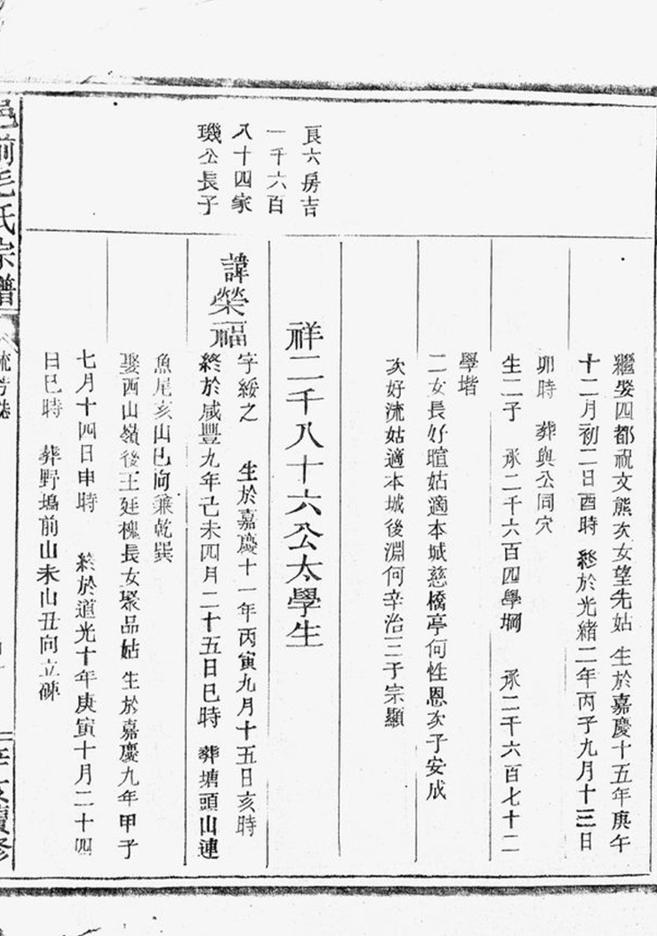 繼娶四都祝文熊次女望先姑 生於嘉慶十五年庚午
十二月初二日酉時 終於光緒二年丙子九月十三日
卯時 葬與公同穴
生二子 承二千六百四學堈 承二千六百七十二
學堦
二女長好暄姑適本城慈橋亭何性恩次子安成
次好流姑適本城後淵何辛治三子宗顯
良六房吉
一千六百
八十四家
璣公長子
祥二千八十六公太學生
諱榮福
字綏之 生於嘉慶十一年丙寅九月十五日亥時
終於咸豐九年己未四月二十五日巳時 葬塘頭山連
魚尾亥山巳向兼乾巽
娶西山嶺後王廷槐長女聚品姑 生於嘉慶九年甲子
七月十四日申時 終於道光十年庚寅十月二十四
日巳時 葬野塢前山未山丑向立碑
邑前毛氏宗譜